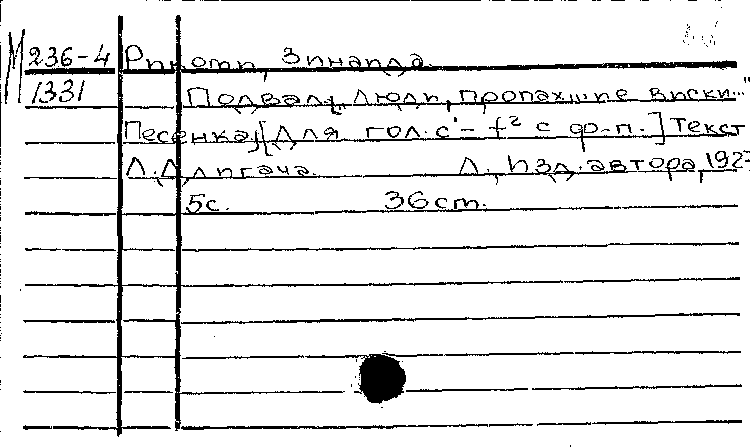 М 236-4 Рикоти, Зинаида.
1331 Подвал „Люди, пропахшие виски..."
Песенка [Для гол. с¹ - f² с ф-п.] Текст
Л. Длигача. Л., Изд. автора, 192
5с. 36 ст.